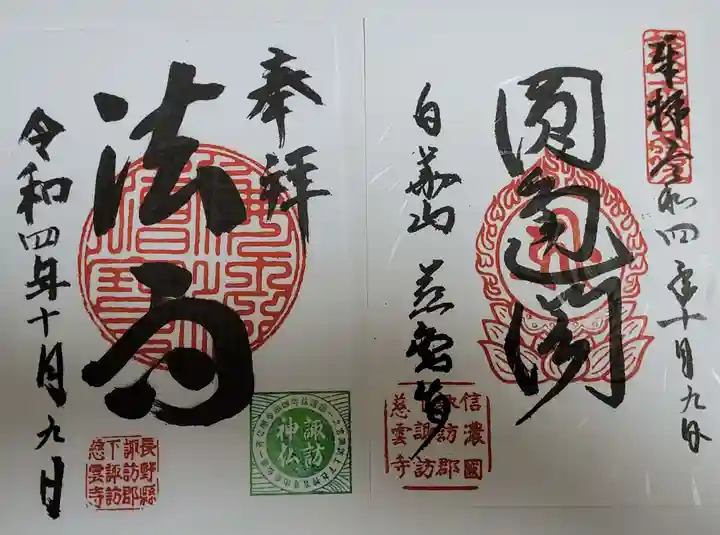 奉拝 令和四年十月九日
圓通閣
白華山 慈雲寺
信濃國
諏訪郡
下諏訪
慈雲寺
奉拝
法雨
令和四年十月九日
諏訪
神仏
長野縣
諏訪郡
下諏訪
慈雲寺